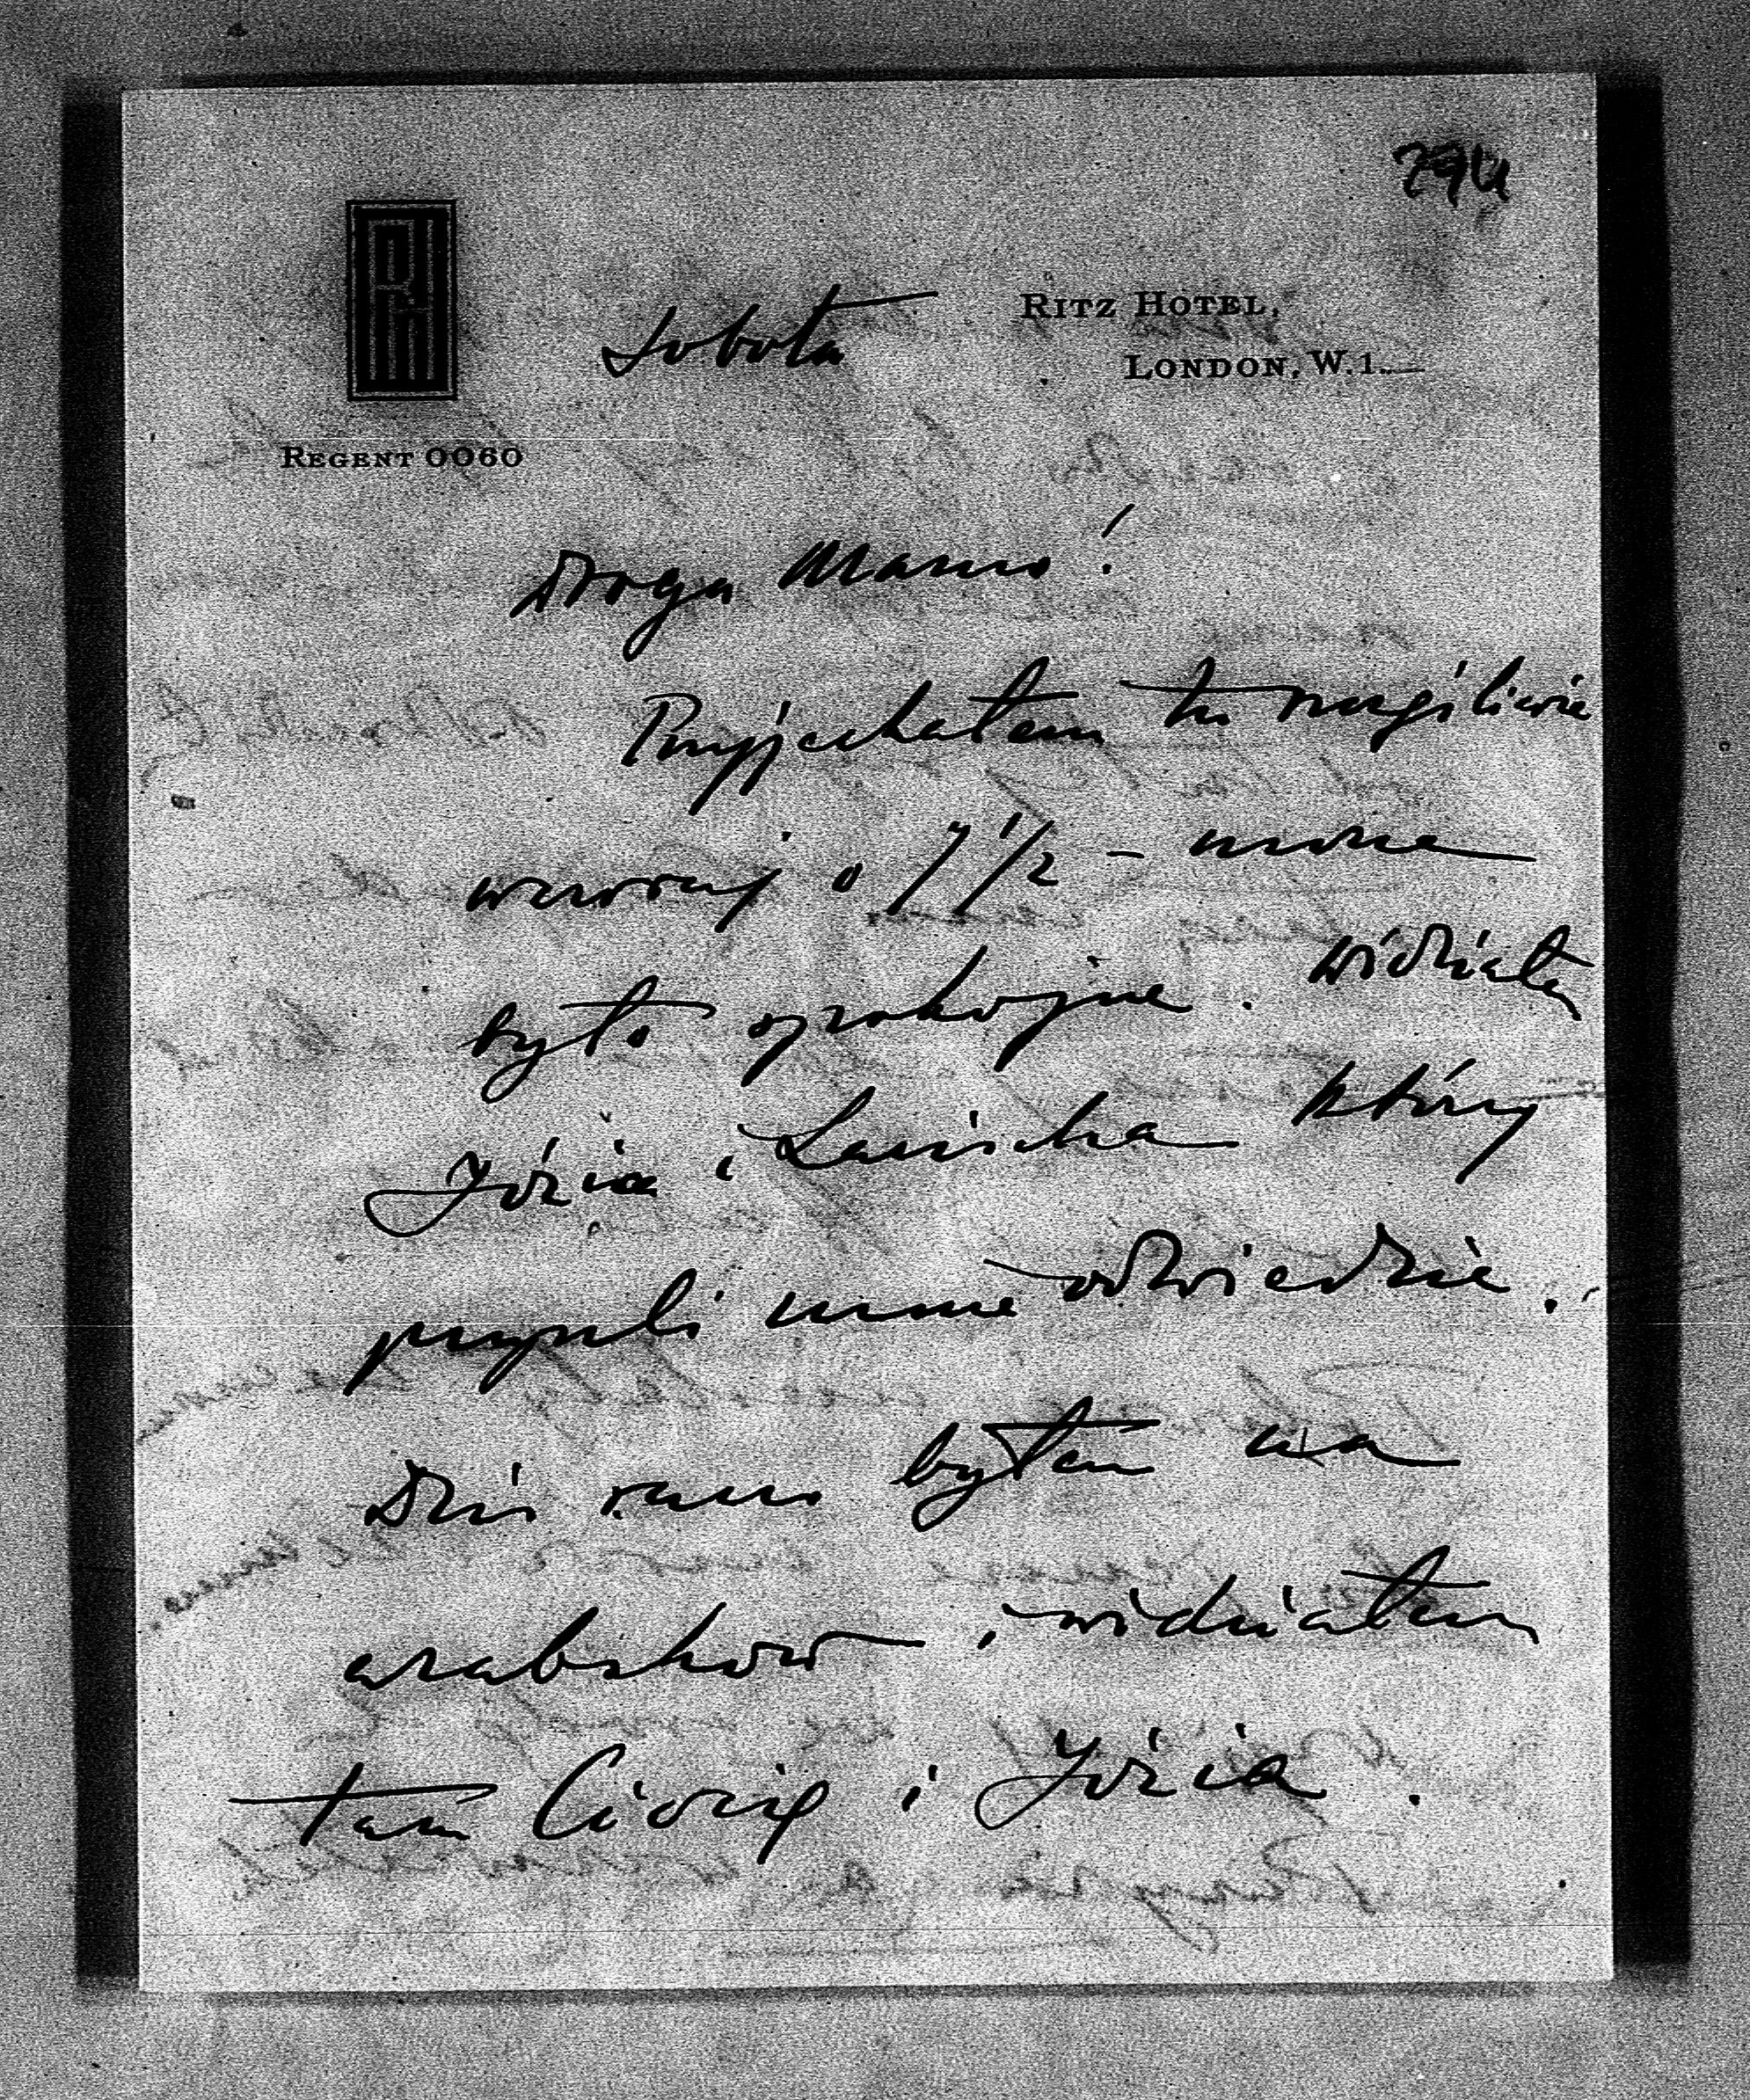 794
Sobota
RITZ HOTEL,
LONDON, W.1.
REGENT 0060
Droga Mamo!
Przyjechałem tu szczęśliwie
wczoraj o 7 1/2 - morze
było spokojne. Widziałem
Józia i Larischa którzy
przyszli mnie odwiedzić.
Dziś rano byłem na
arabskow i widziałem
tam Ciocię i Józia.